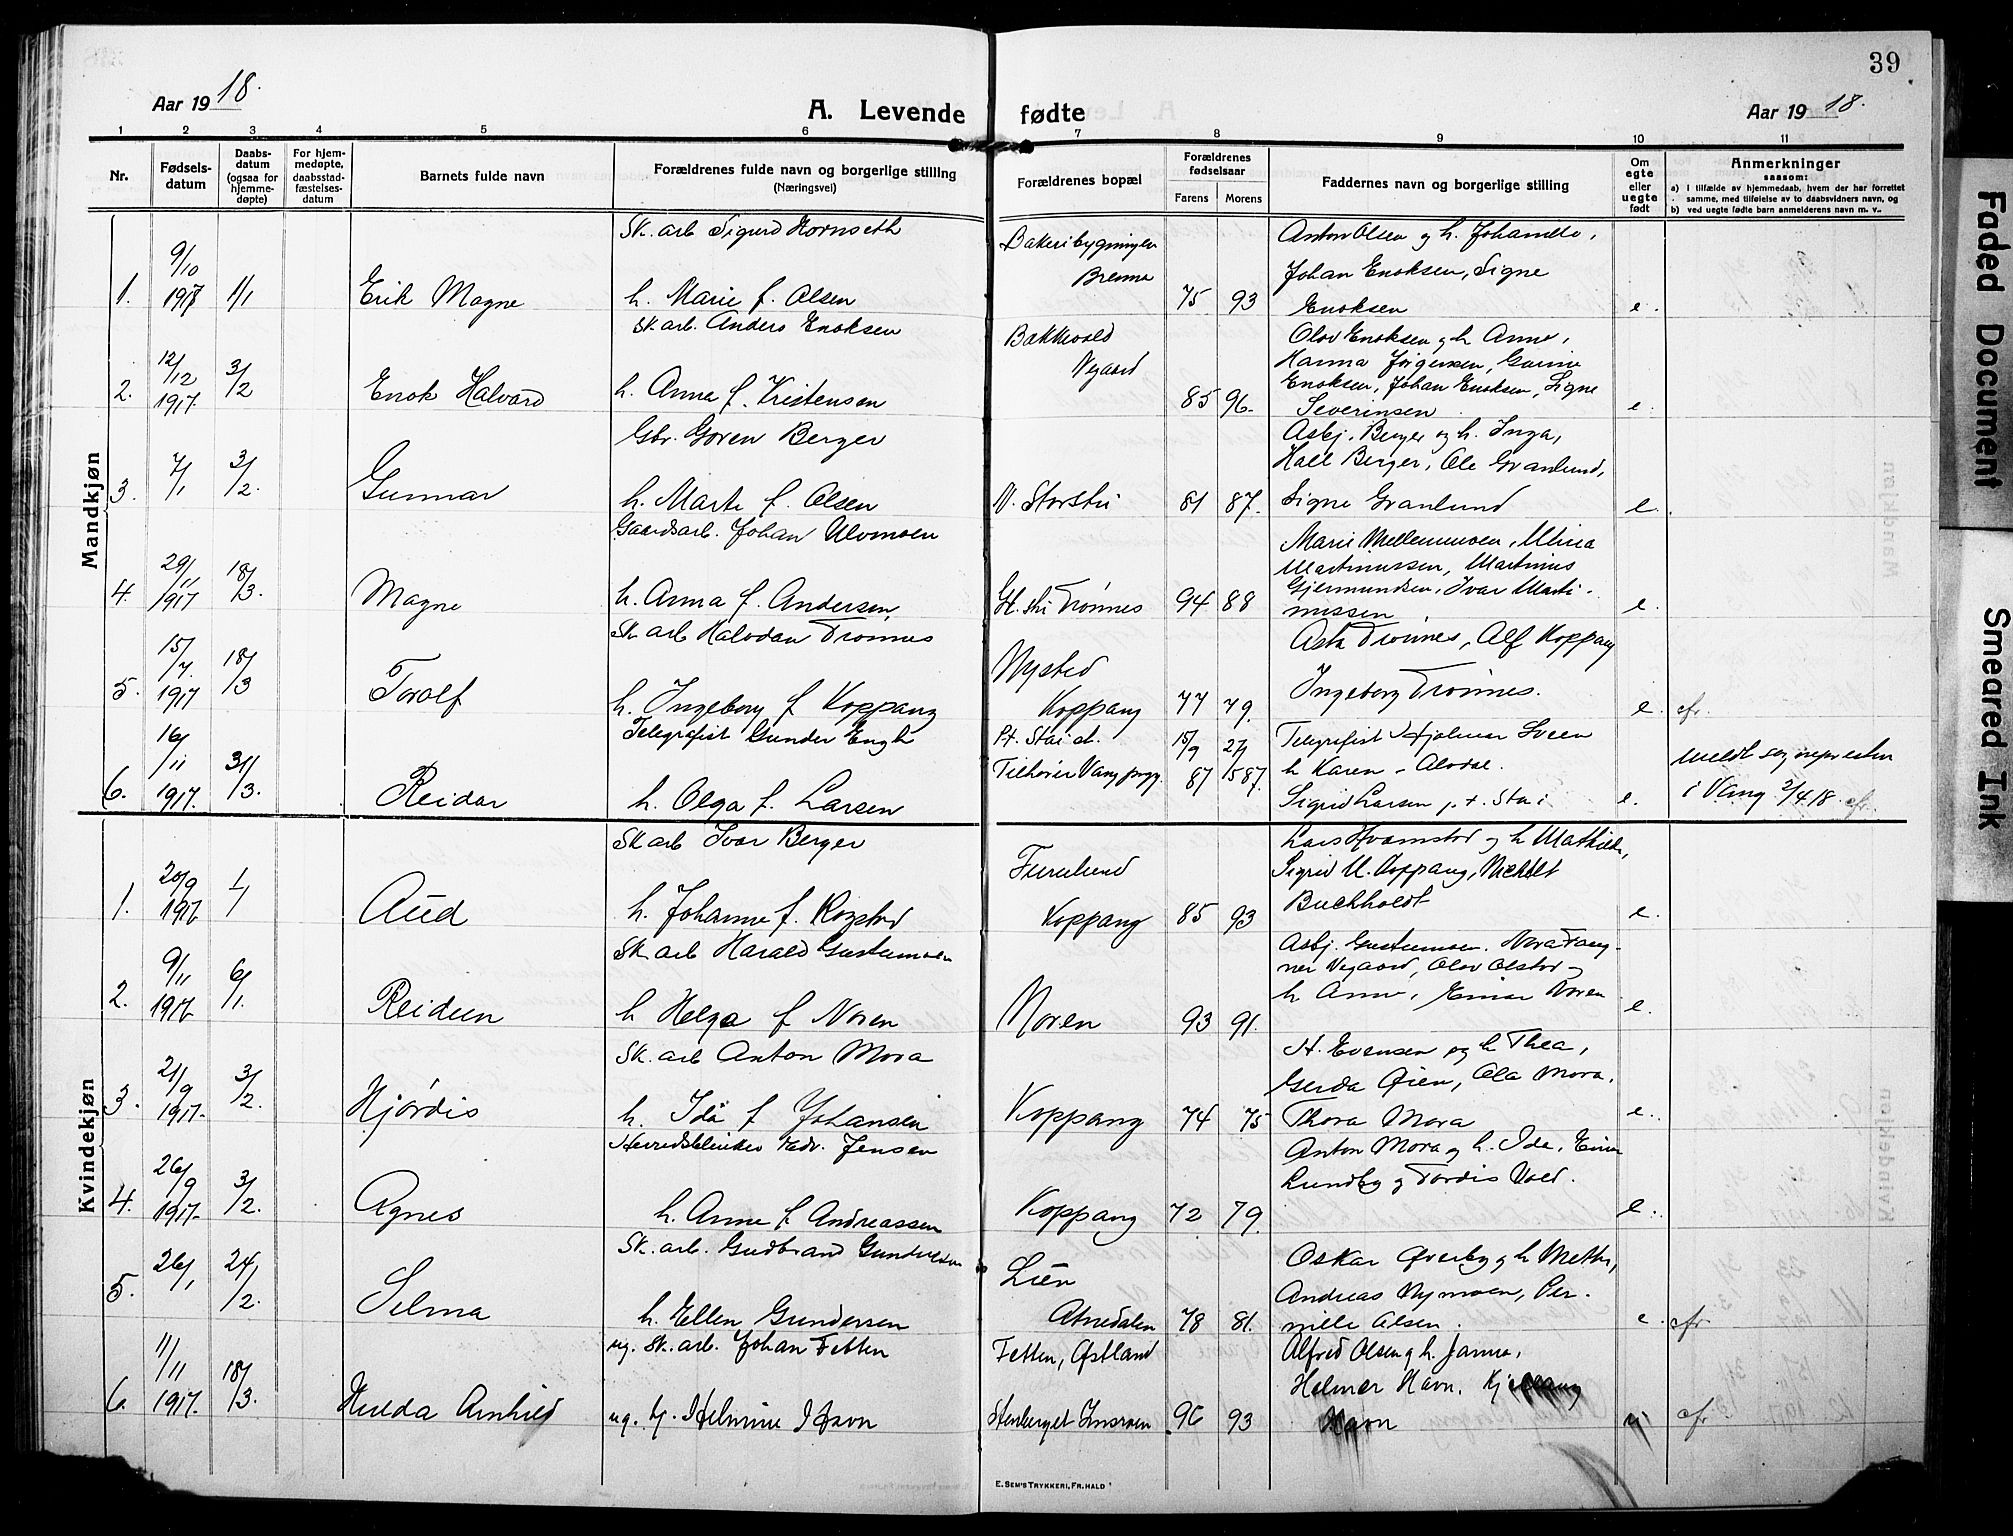 39
Aar 1918.
A. Levende fødte
Aar 1918.
1 2 3 4 5 6 7 8 9 10 11
Nr.
Fødsels-
datum
Daabs-
datum
(ogsaa for
hjemme-
døpte)
For hjem-
medøpte,
daabsstad-
fæstelses-
datum
Barnets fulde navn
Forældrenes fulde navn og borgerlige stilling
(Næringsvei)
Forældrenes bopæl
Forældrenes
fødselsaar
Farens Morens
Faddernes navn og borgerlige stilling
Om
egte
eller
uegte
født
Anmerkninger
saasom:
a) i tilfælde av hjemmedaab, hvem der har forrettet
samme, med tilføielse av to daabsvidners navn, og
b) ved uegte fødte barn anmelderens navn m. v.
Mandkjøn
1. 9/10 1917 1/1 Erik Magne
Sk. arb Sigurd Hornseth
h. Marie f. Olsen
Bakeribygningen
Brenna
75 93
Anton Olsen og h. Johanne,
Johan Enoksen, Signe
Enoksen
e.
2. 12/12 1917 3/2 Enok Halvard
Sk. arb. Anders Enoksen
h. Anna f. Kristensen
Bakkevold
Negaard
85 96.
Olav Enoksen og h Anne,
Hanna Jørgensen,
Enoksen, Johan Enoksen, Signe
Severinsen
e.
3. 7/1 3/2. Gunnar
Gbr. Goren Berger
h. Marte f. Olsen
N. Storsti
81 87.
Asbj. Berger og h. Inga,
Hall Berger, Ole Granlund,
Signe Granlund
e.
4. 29/11 1917 18/3. Magne
Gaardsarb. Johan Ulvmoen
h. Anna f. Andersen,
Gl. sti Trønnes
94 88
Marie Mellemmoen,
Martinussen, Martinus
Gjermundsen, Ivar Marti-
nussen
e.
5. 15/7 1917 18/3 Torolf
Sk arb Halvdan Trønnes
h. Ingeborg f Koppang
Nysted
Koppang
77 79.
Asta Trønnes, Alf Koppang
Ingeborg Trønnes.
e. cfr.
6. 16/11 1917. 31/3. Reidar
Telegrafist Gunder Engh
h. Olga f. Larsen
Pt. Stai st.
Tilhører Vang prgj.
15/9 87 27/1587.
Telegrafist Hjalmar Sveen
h Karen - Alvdal.
Sigrid Larsen p. t. Stai
e.
meldt sognepresten
i Vang 2/4 18. cfr.
Kvindekjøn
1. 20/9 1917 1/1 Aud
Sk arb Ivar Berger
h. Johanne f. Rogstad
Furulund
Koppang
85 93
Lars Hvamstad og h Mathilde,
Sigrid M. Koppang,
Buchholdt
e.
2. 9/11 1917 6/1. Reidun
Sk arb Harald Gustumoen
h Helga f Noren
Moren
93 91.
Asbj. Gustumoen. Nora Tang-
nes Negaard, Olav Olstad og
h Anne, Einar Noren
e.
3. 21/9 1917. 3/2. Hjørdis
Sk. arb Anton Mora
h. Ida f Johansen
Koppang
74 75
H. Evensen og h Thea,
Gerda Øien, Ola Mora.
Thora Mora
e.
4. 26/9 1917. 3/2. Agnes
Herredskasserer Edv. Jensen
h. Anne f Andreassen
Koppang
72 79.
Anton Mora og h. Ida, Einar
Lundby og Tordis Vold.
e.
5. 26/1 24/2. Selma
Sk. arb. Gudbrand Gundersen
h. Ellen Gundersen
Lien
Atnedalen
78 81.
Oskar Øverby og h Mette,
Andreas Nymoen, Per-
nille Olsen.
e. cfr
6. 11/11 1917. 18/3. Hulda Arnhild
ug. sk. arb. Johan Fetten
ug. tj. Helmine Havn
Fetten, Østland
Stenberget Imsroen
96 93
Alfred Olsen og h. Janna,
Helmer Havn,
Havn
u cfr
E. SEM'S TRYKKERI, FR.HALD
Faded Document
Smeared Ink